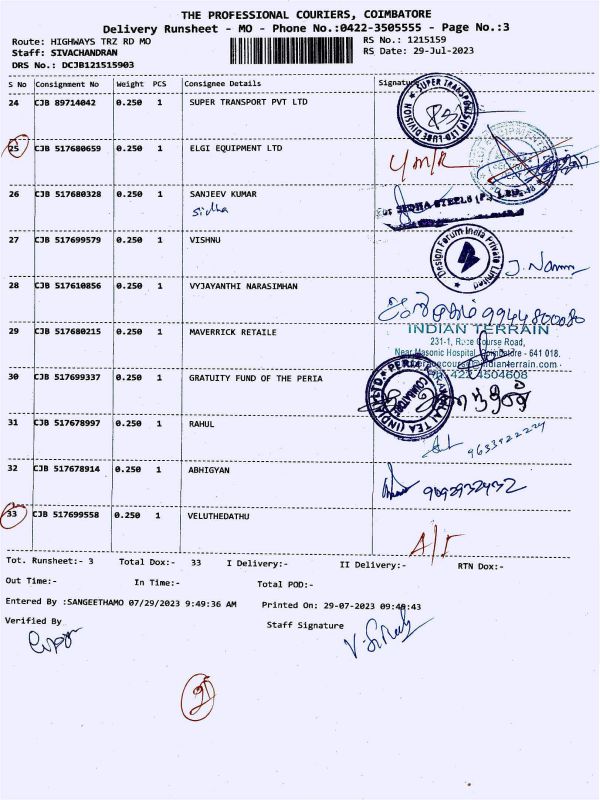 THE PROFESSIONAL COURIERS, COIMBATORE
Delivery Runsheet - MO - Phone No.:0422-3505555 - Page No.:3
Route: HIGHWAYS TRZ RD MO
RS No.: 1215159
Staff: SIVACHANDRAN
RS Date: 29-Jul-2023
DRS No.: DCJB121515903
S No Consignment No Weight PCS Consignee Details Signature
24 CJB 89714042 0.250 1 SUPER TRANSPORT PVT LTD
25 CJB 517680659 0.250 1 ELGI EQUIPMENT LTD
26 CJB 517680328 0.250 1 SANJEEV KUMAR
sidha
SIDHA STEELS (P.) LTD.
27 CJB 517699579 0.250 1 VISHNU
Design Forum India Private Limited
28 CJB 517610856 0.250 1 VYJAYANTHI NARASIMHAN
9944800080
29 CJB 517680215 0.250 1 MAVERRICK RETAILE
INDIAN TERRAIN
231-1, Race Course Road,
Near Masonic Hospital, Coimbatore - 641 018.
30 CJB 517699337 0.250 1 GRATUITY FUND OF THE PERIA
31 CJB 517678997 0.250 1 RAHUL
32 CJB 517678914 0.250 1 ABHIGYAN
9092932432
33 CJB 517699558 0.250 1 VELUTHEDATHU
A/I
Tot. Runsheet:- 3 Total Dox:- 33 I Delivery:- II Delivery:- RTN Dox:-
Out Time:- In Time:- Total POD:-
Entered By :SANGEETHAMO 07/29/2023 9:49:36 AM Printed On: 29-07-2023 09:49:43
Verified By
Staff Signature